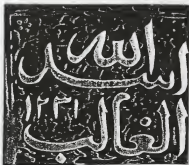 اسد الله
الغالب
١٢٣١